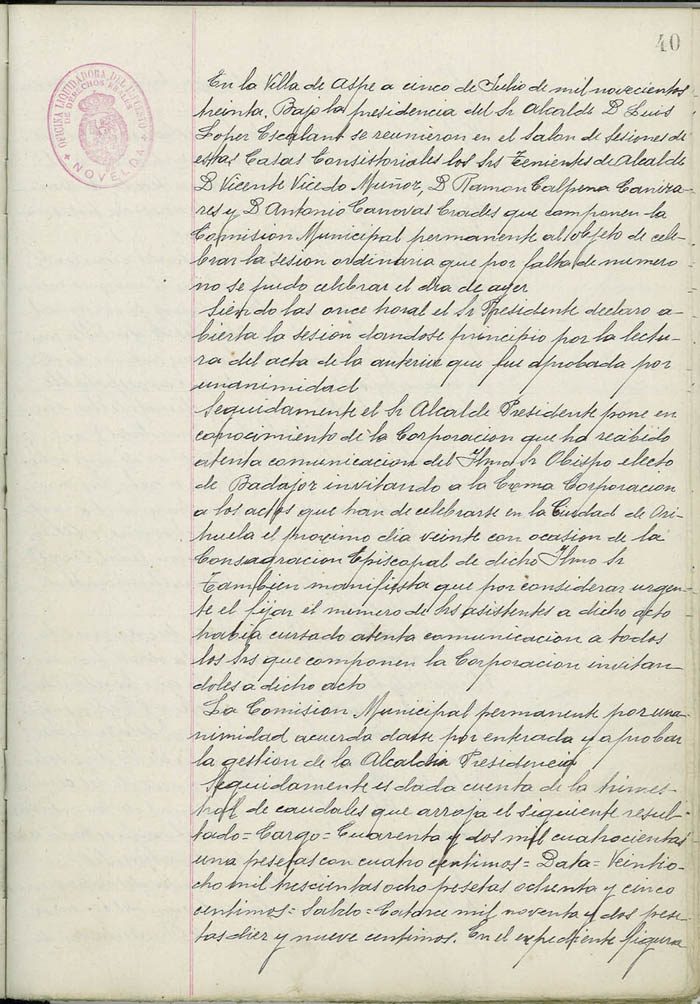 40
OFICINA LIQUIDADORA DEL IMPUESTO
DE DERECHOS REALES
NOVELDA
En la Villa de Aspe a cinco de Julio de mil novecientos
treinta, Bajo la presidencia del Sr Alcalde D Luis
Lopez Escalant se reunieron en el Salon de Sesiones de
estas Casas Consistoriales los Srs Tenientes de Alcalde
D Vicente Vicedo Muñoz, D Ramon Calpena Caniza-
res y D Antonio Canovas Erades que componen la
Comision Municipal permanente al objeto de cele-
brar la sesion ordinaria que por falta de numero
no se puedo celebrar el dia de ayer
Siendo las once horas el Sr Presidente declaro a-
bierta la sesion dandose principio por la lectu-
ra del acta de la anterior que fue aprobada por
unanimidad
Seguidamente el Sr Alcalde Presidente pone en
conocimiento de la Corporacion que ha recibido
atenta comunicacion del Iltmo Sr Obispo electo
de Badajoz invitando a la Corporacion
a los actos que han de celebrarse en la Ciudad de Ori-
huela el proximo dia veinte con ocasion de la
Consagracion Episcopal de dicho Iltmo Sr
Tambien manifiesta que por considerar urgen-
te el fijar el numero de Srs asistentes a dicho acto
habia cursado atenta comunicacion a todos
los Srs que componen la Corporacion invitan-
doles a dicho acto
La Comision Municipal permanente por una-
nimidad acuerda darse por enterada y aprobar
la gestion de la Alcaldia Presidencia
Seguidamente es dada cuenta de la trimes-
tral de caudales que arroja el siguiente resul-
tado = Cargo = Cuarenta y dos mil cuatrocientas
una pesetas con cuatro centimos = Data = Veintio-
cho mil trescientas ocho pesetas ochenta y cinco
centimos = Saldo = Catorce mil noventa y dos pese-
tas diez y nueve centimos. En el expediente figura